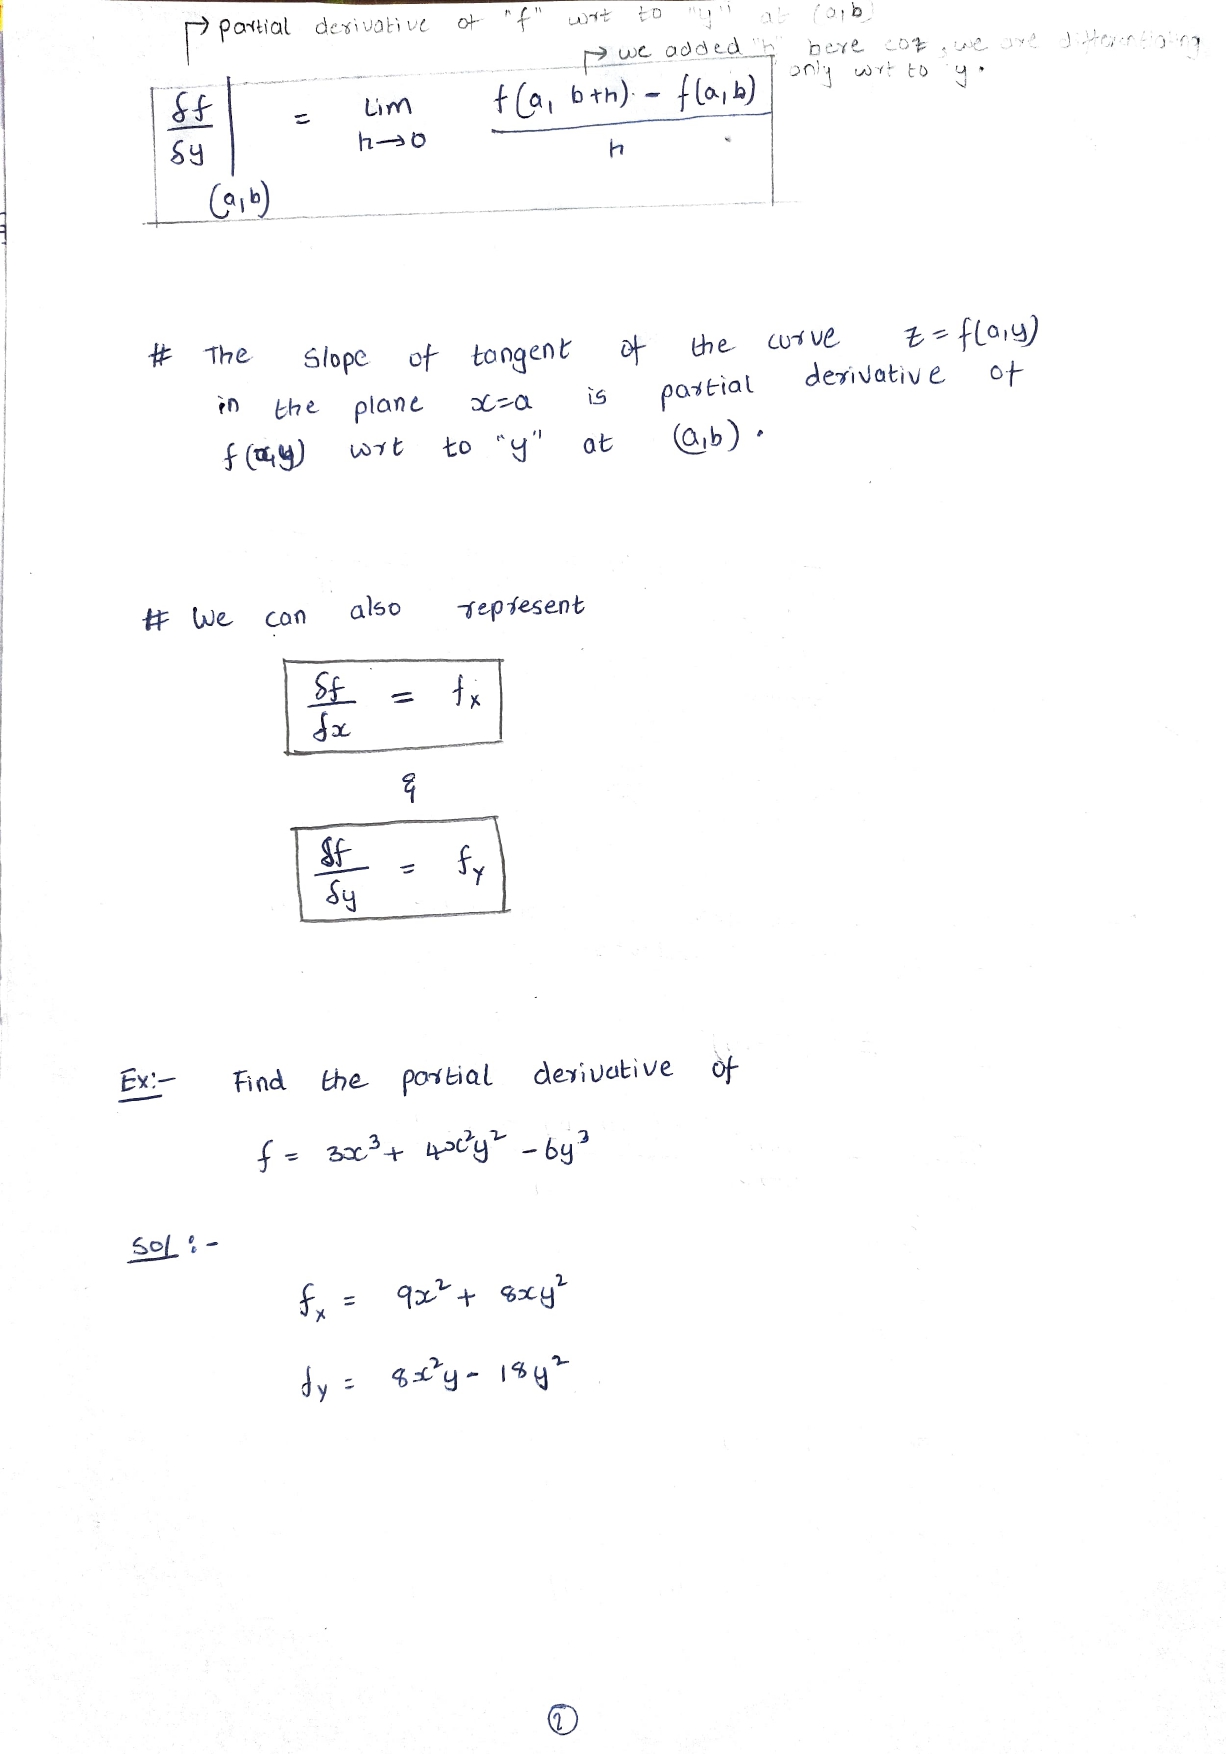 partial derivative of "f" wrt to "y" at (a,b)
we added "h" here coz, we are differentiating
only wrt to y.
δf/δy |(a,b) = Lim h→0 f(a, b+h) - f(a,b) / h
# The slope of tangent of the curve z = f(a,y)
in the plane x=a is partial derivative of
f(x,y) wrt to "y" at (a,b).
# We can also represent
δf/δx = fx
&
δf/δy = fy
Ex:- Find the partial derivative of
f = 3x³ + 4x²y² - 6y³
Sol :-
fx = 9x² + 8xy²
fy = 8x²y - 18y²
2